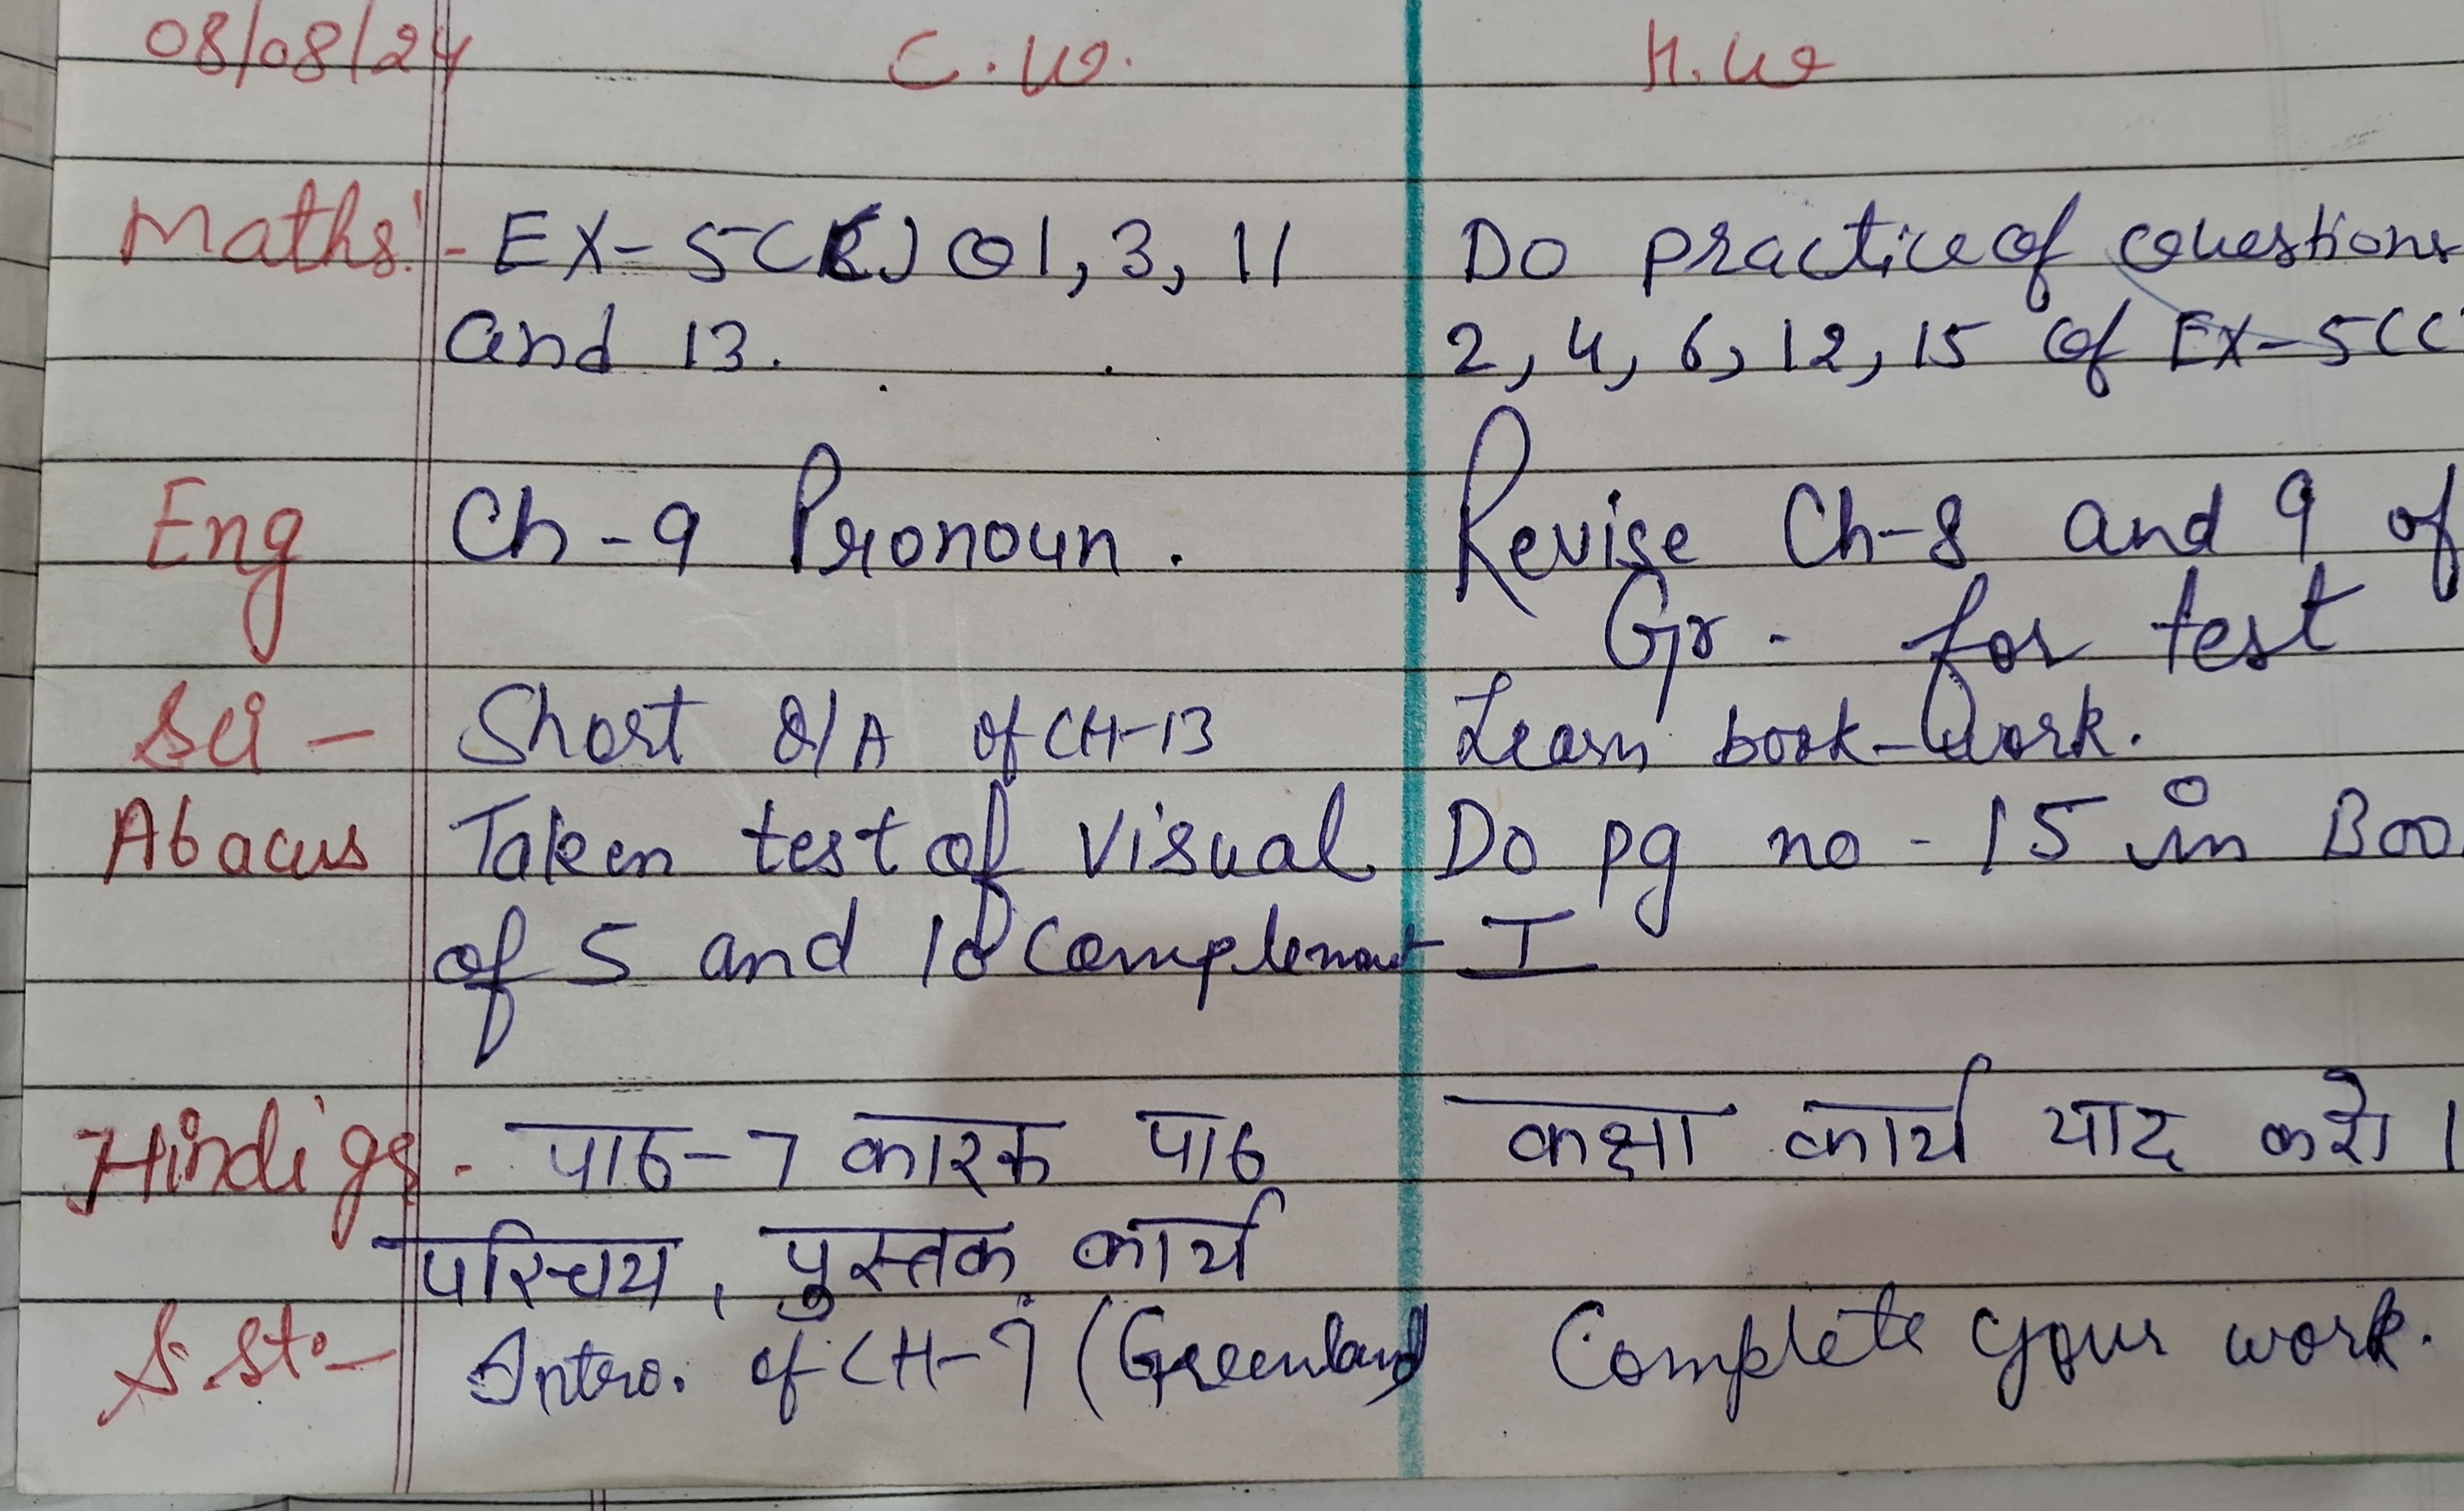 08/08/24 C.W. H.W
Maths:- EX-5(C) Q1, 3, 11 Do practice of Questions
and 13. 2, 4, 6, 12, 15 of EX-5(C
Eng Ch-9 Pronoun. Revise Ch-8 and 9 of
Gr. for test
Sci - Short Q/A of CH-13 Learn book-work.
Abacus Taken test of Visual Do pg no - 15 in Boo
of 5 and 10 Complement I
Hindi gr. - पाठ-7 कारक पाठ कक्षा कार्य याद करो।
परिचय, पुस्तक कार्य
S.St:- Intro. of CH-7 (Greenland) Complete your work.